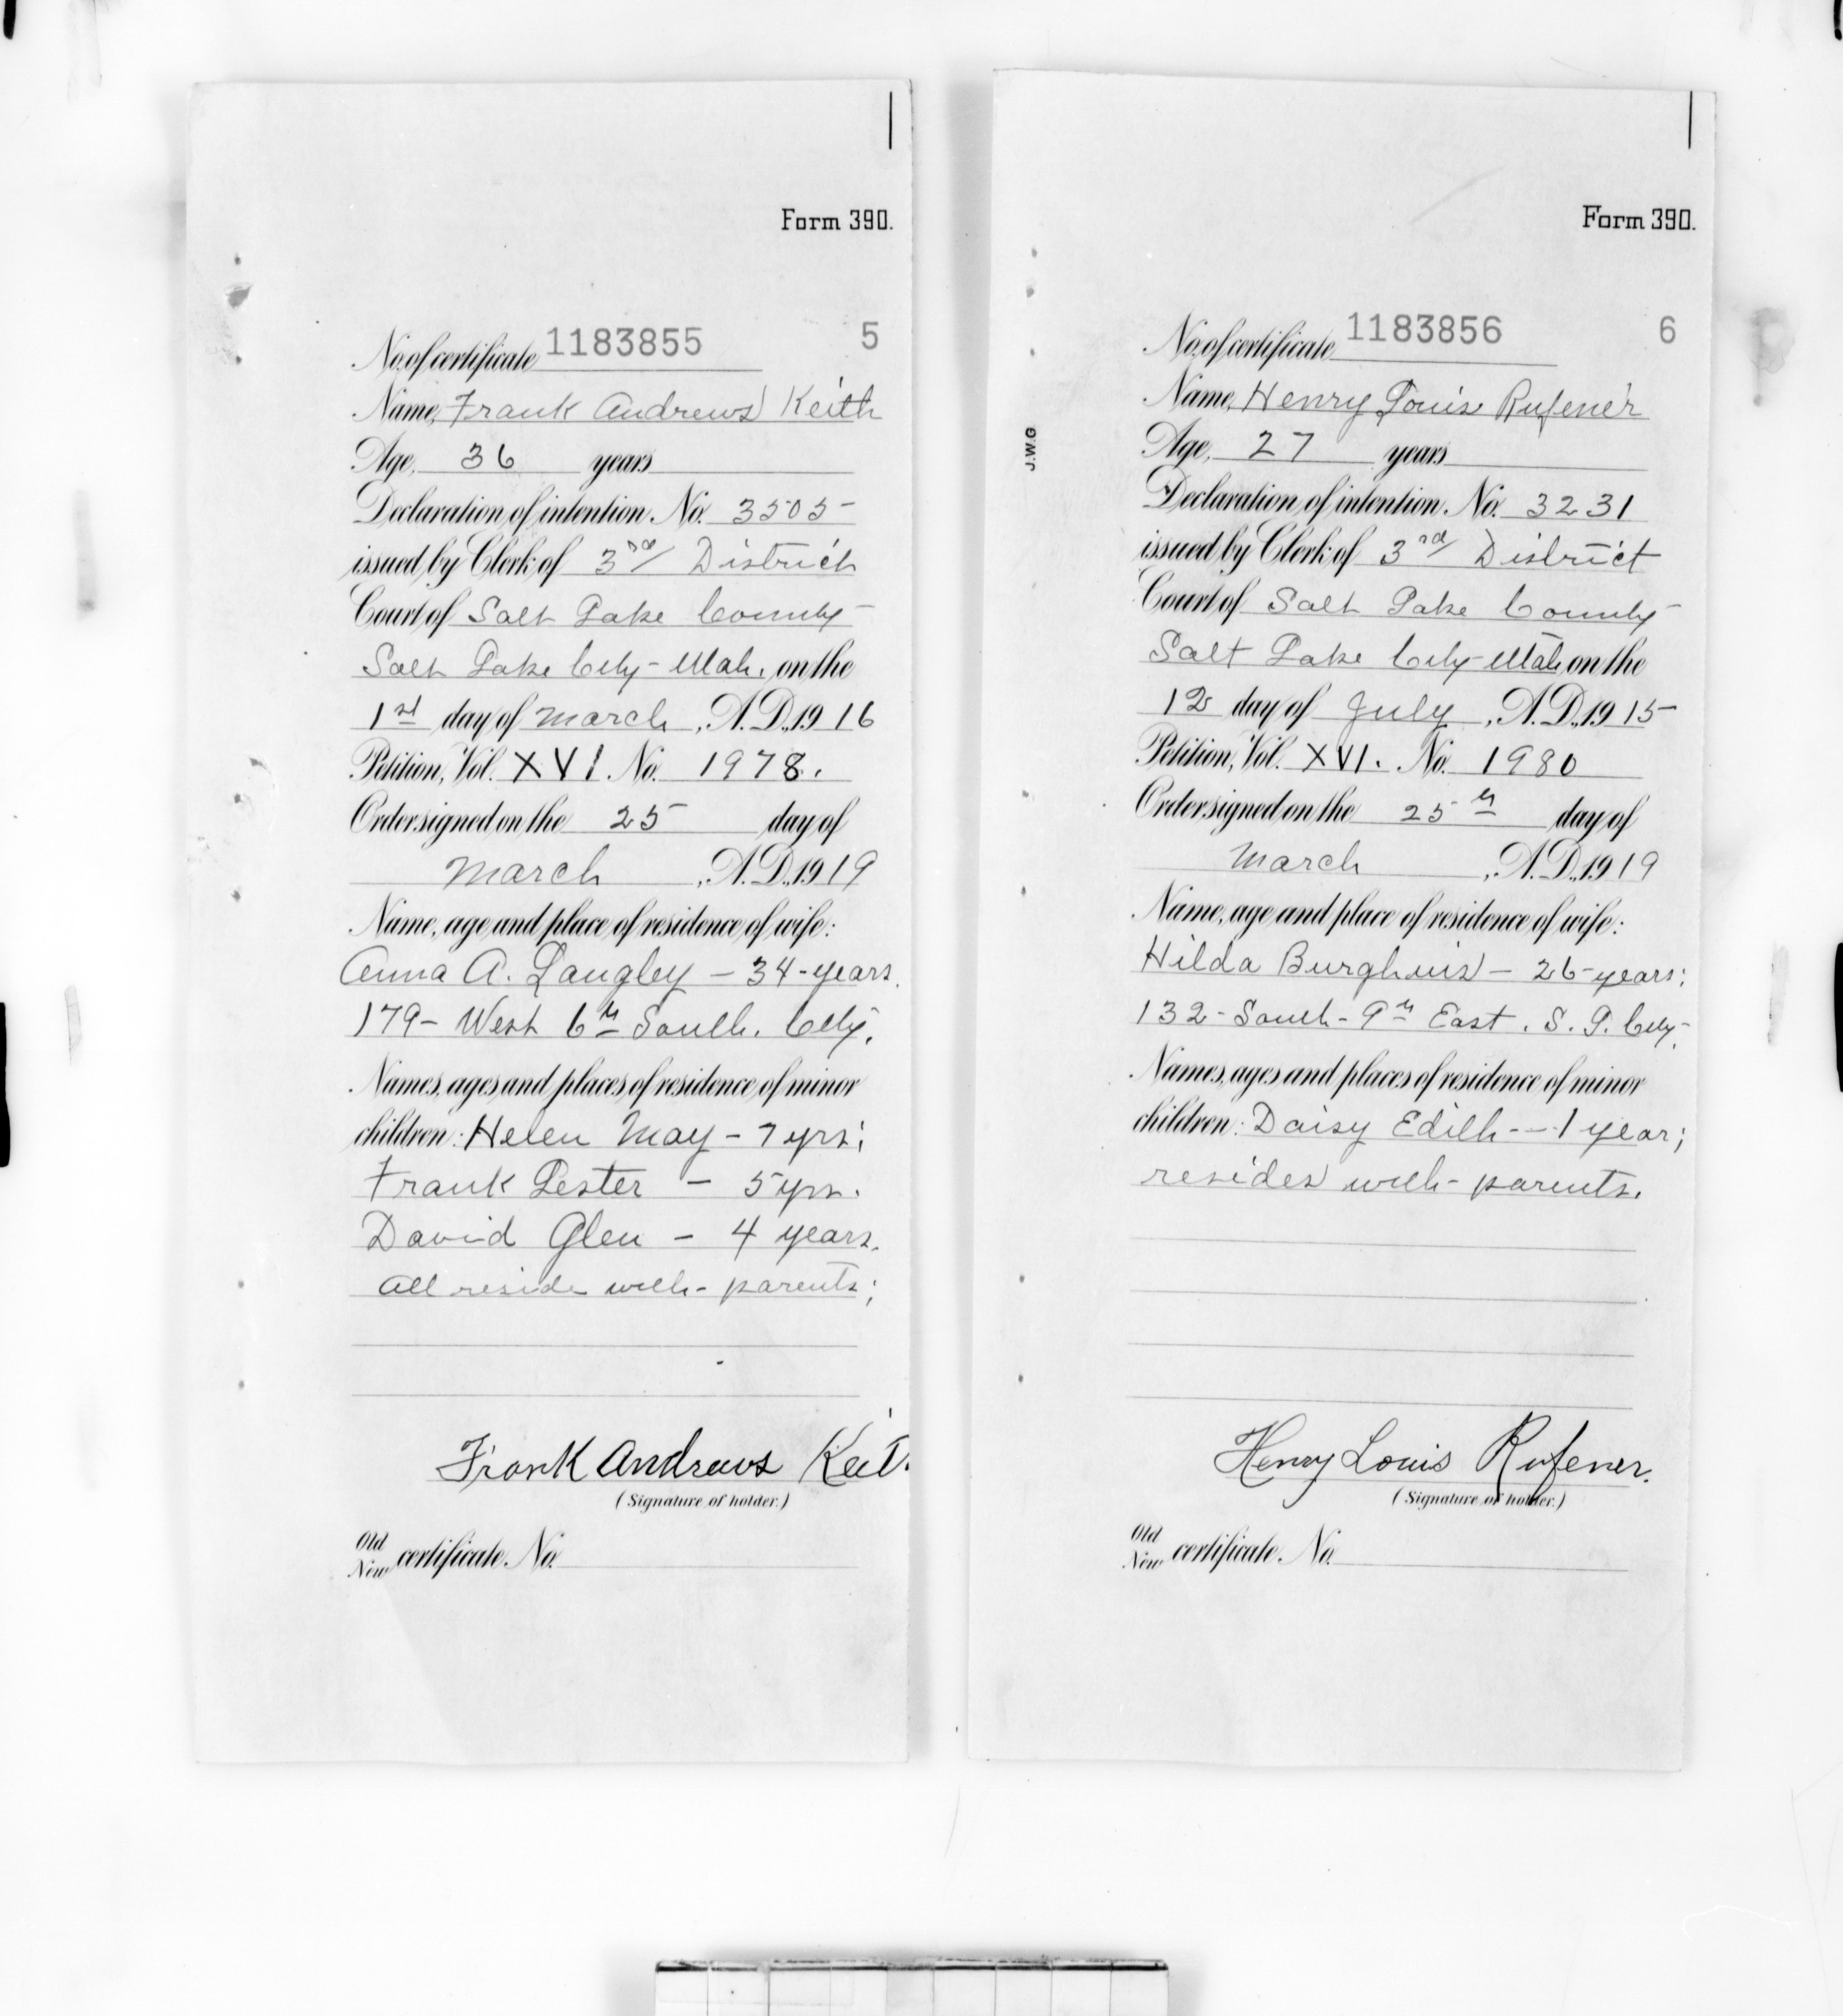 Form 390.
No. of certificate 1183855 5
Name, Frank Andrews Keith
Age, 36 years
Declaration of intention No. 3505
issued by Clerk of 3rd District
Court of Salt Lake County
Salt Lake City - Utah. on the
1st day of March, A.D., 1916
Petition, Vol. XVI. No. 1978.
Order signed on the 25 day of
March, A.D., 1919
Name, age and place of residence of wife:
Anna A. Langley - 34-years.
179- West 6th South. City.
Names, ages and places of residence of minor
children: Helen May - 7 yrs;
Frank Lester - 5 yrs.
David Glen - 4 years.
All reside with- parents;
Frank Andrews Keit
(Signature of holder.)
Old
New certificate No.
Form 390.
No. of certificate 1183856 6
Name, Henry Louis Rufener
J.W.G
Age, 27 years
Declaration of intention No. 3231
issued by Clerk of 3rd District
Court of Salt Lake County
Salt Lake City Utah on the
12 day of July, A.D., 1915
Petition, Vol. XVI. No. 1980
Order signed on the 25th day of
March, A.D., 1919
Name, age and place of residence of wife:
Hilda Burghuis - 26-years;
132- South- 9th East. S. L. City.
Names, ages and places of residence of minor
children: Daisy Edith -- 1 year;
resides with- parents.
Henry Louis Rufener.
(Signature of holder.)
Old
New certificate No.